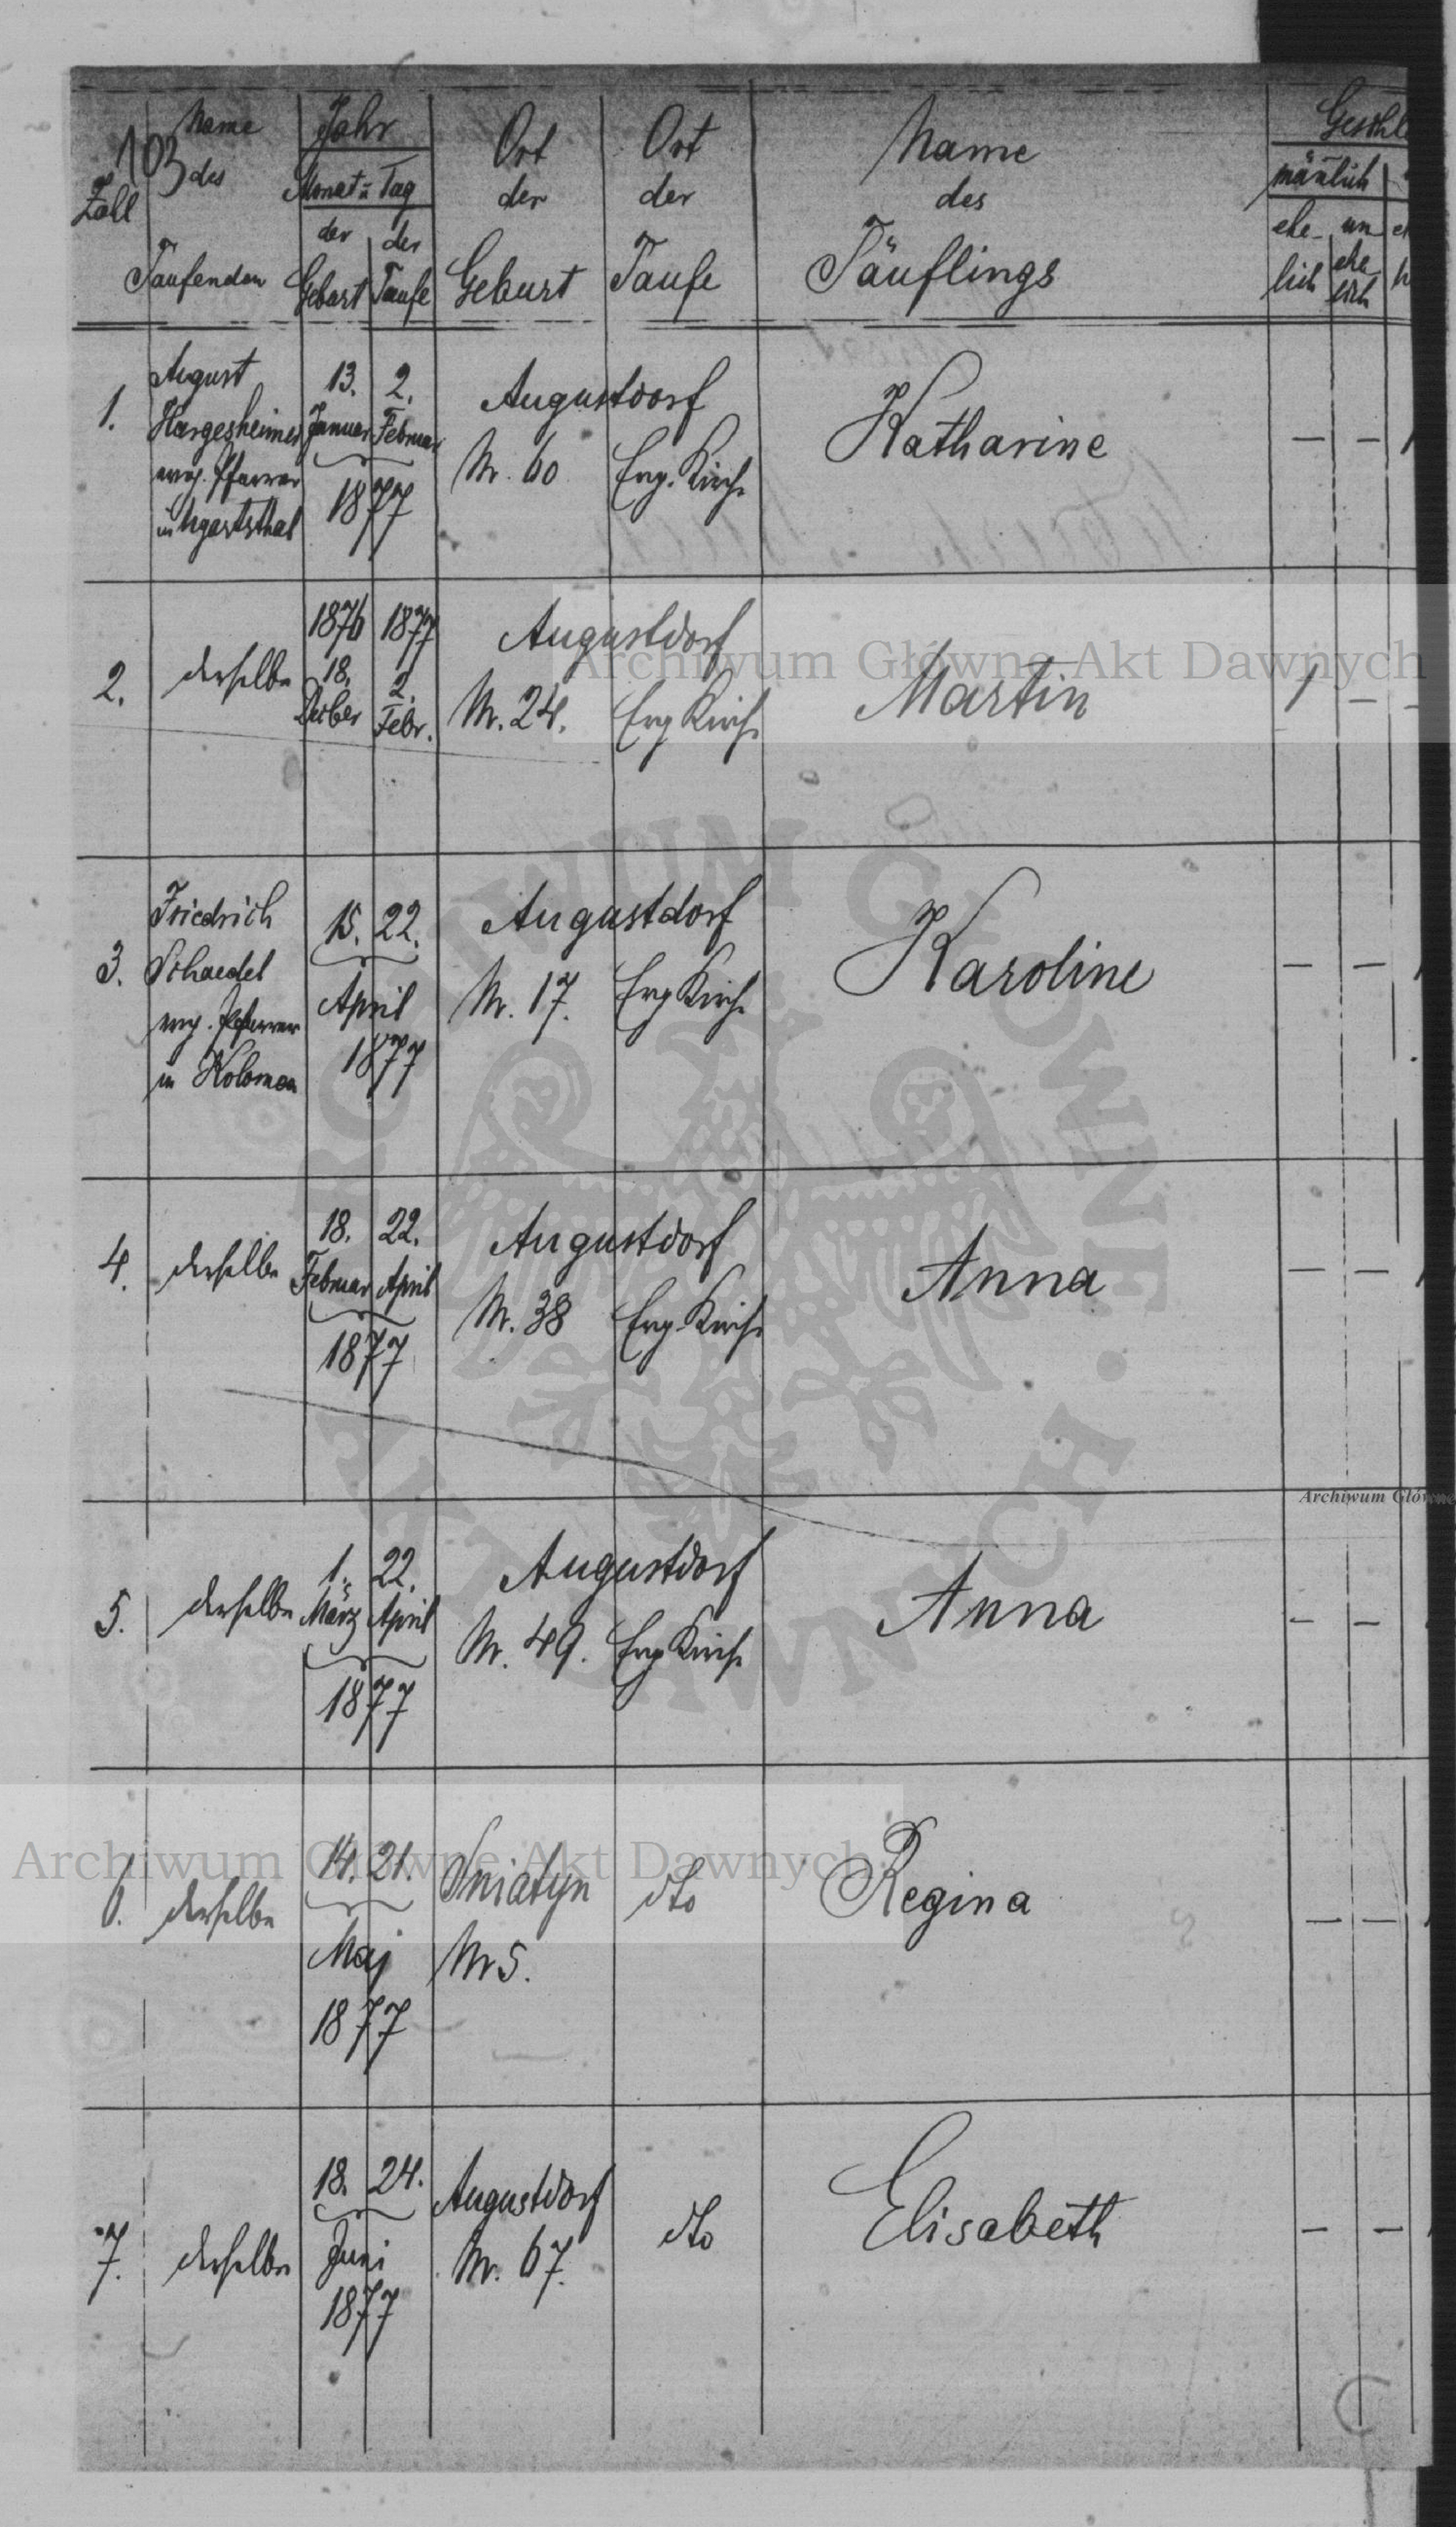 103
Zall
Name
des
Taufenden
Jahr
Monat u Tag
der Geburt
der Taufe
Ort der Geburt
Ort der Taufe
Name
des
Täuflings
Geschl
mänlich
ehe-
lich
un
ehe
lich
1.
August
Hargesheimer
evag. Pfarrer
in Ugartsthal
13. 2.
Januar Februar
1877
Augustdorf
Nr. 60
Evg. Kirche
Katharine
— —
2.
derselbe
1876 1877
18. 2.
Dezber Febr.
Augustdorf
Nr. 24.
Evg Kirche
Martin
1 —
3.
Friedrich
Schaedel
evg. Pfarrer
in Kolomea
15. 22.
April
1877
Augustdorf
Nr. 17.
Evg Kirche
Karoline
— —
4.
derselbe
18. 22.
Februar April
1877
Augustdorf
Nr. 38
Evg. Kirche
Anna
— —
5.
derselbe
1. 22.
März April
1877
Augustdorf
Nr. 49.
Evg Kirche
Anna
— —
6.
derselbe
14. 21.
Maj
1877
Sniatyn
Nr 5.
dto
Regina
— —
7.
derselbe
18. 24.
Juni
1877
Augustdorf
Nr. 67.
dto
Elisabeth
— —
Archiwum Główne Akt Dawnych
Archiwum Główne
Archiwum Główne Akt Dawnych
ARCHIWUM GŁÓWNE AKT DAWNYCH